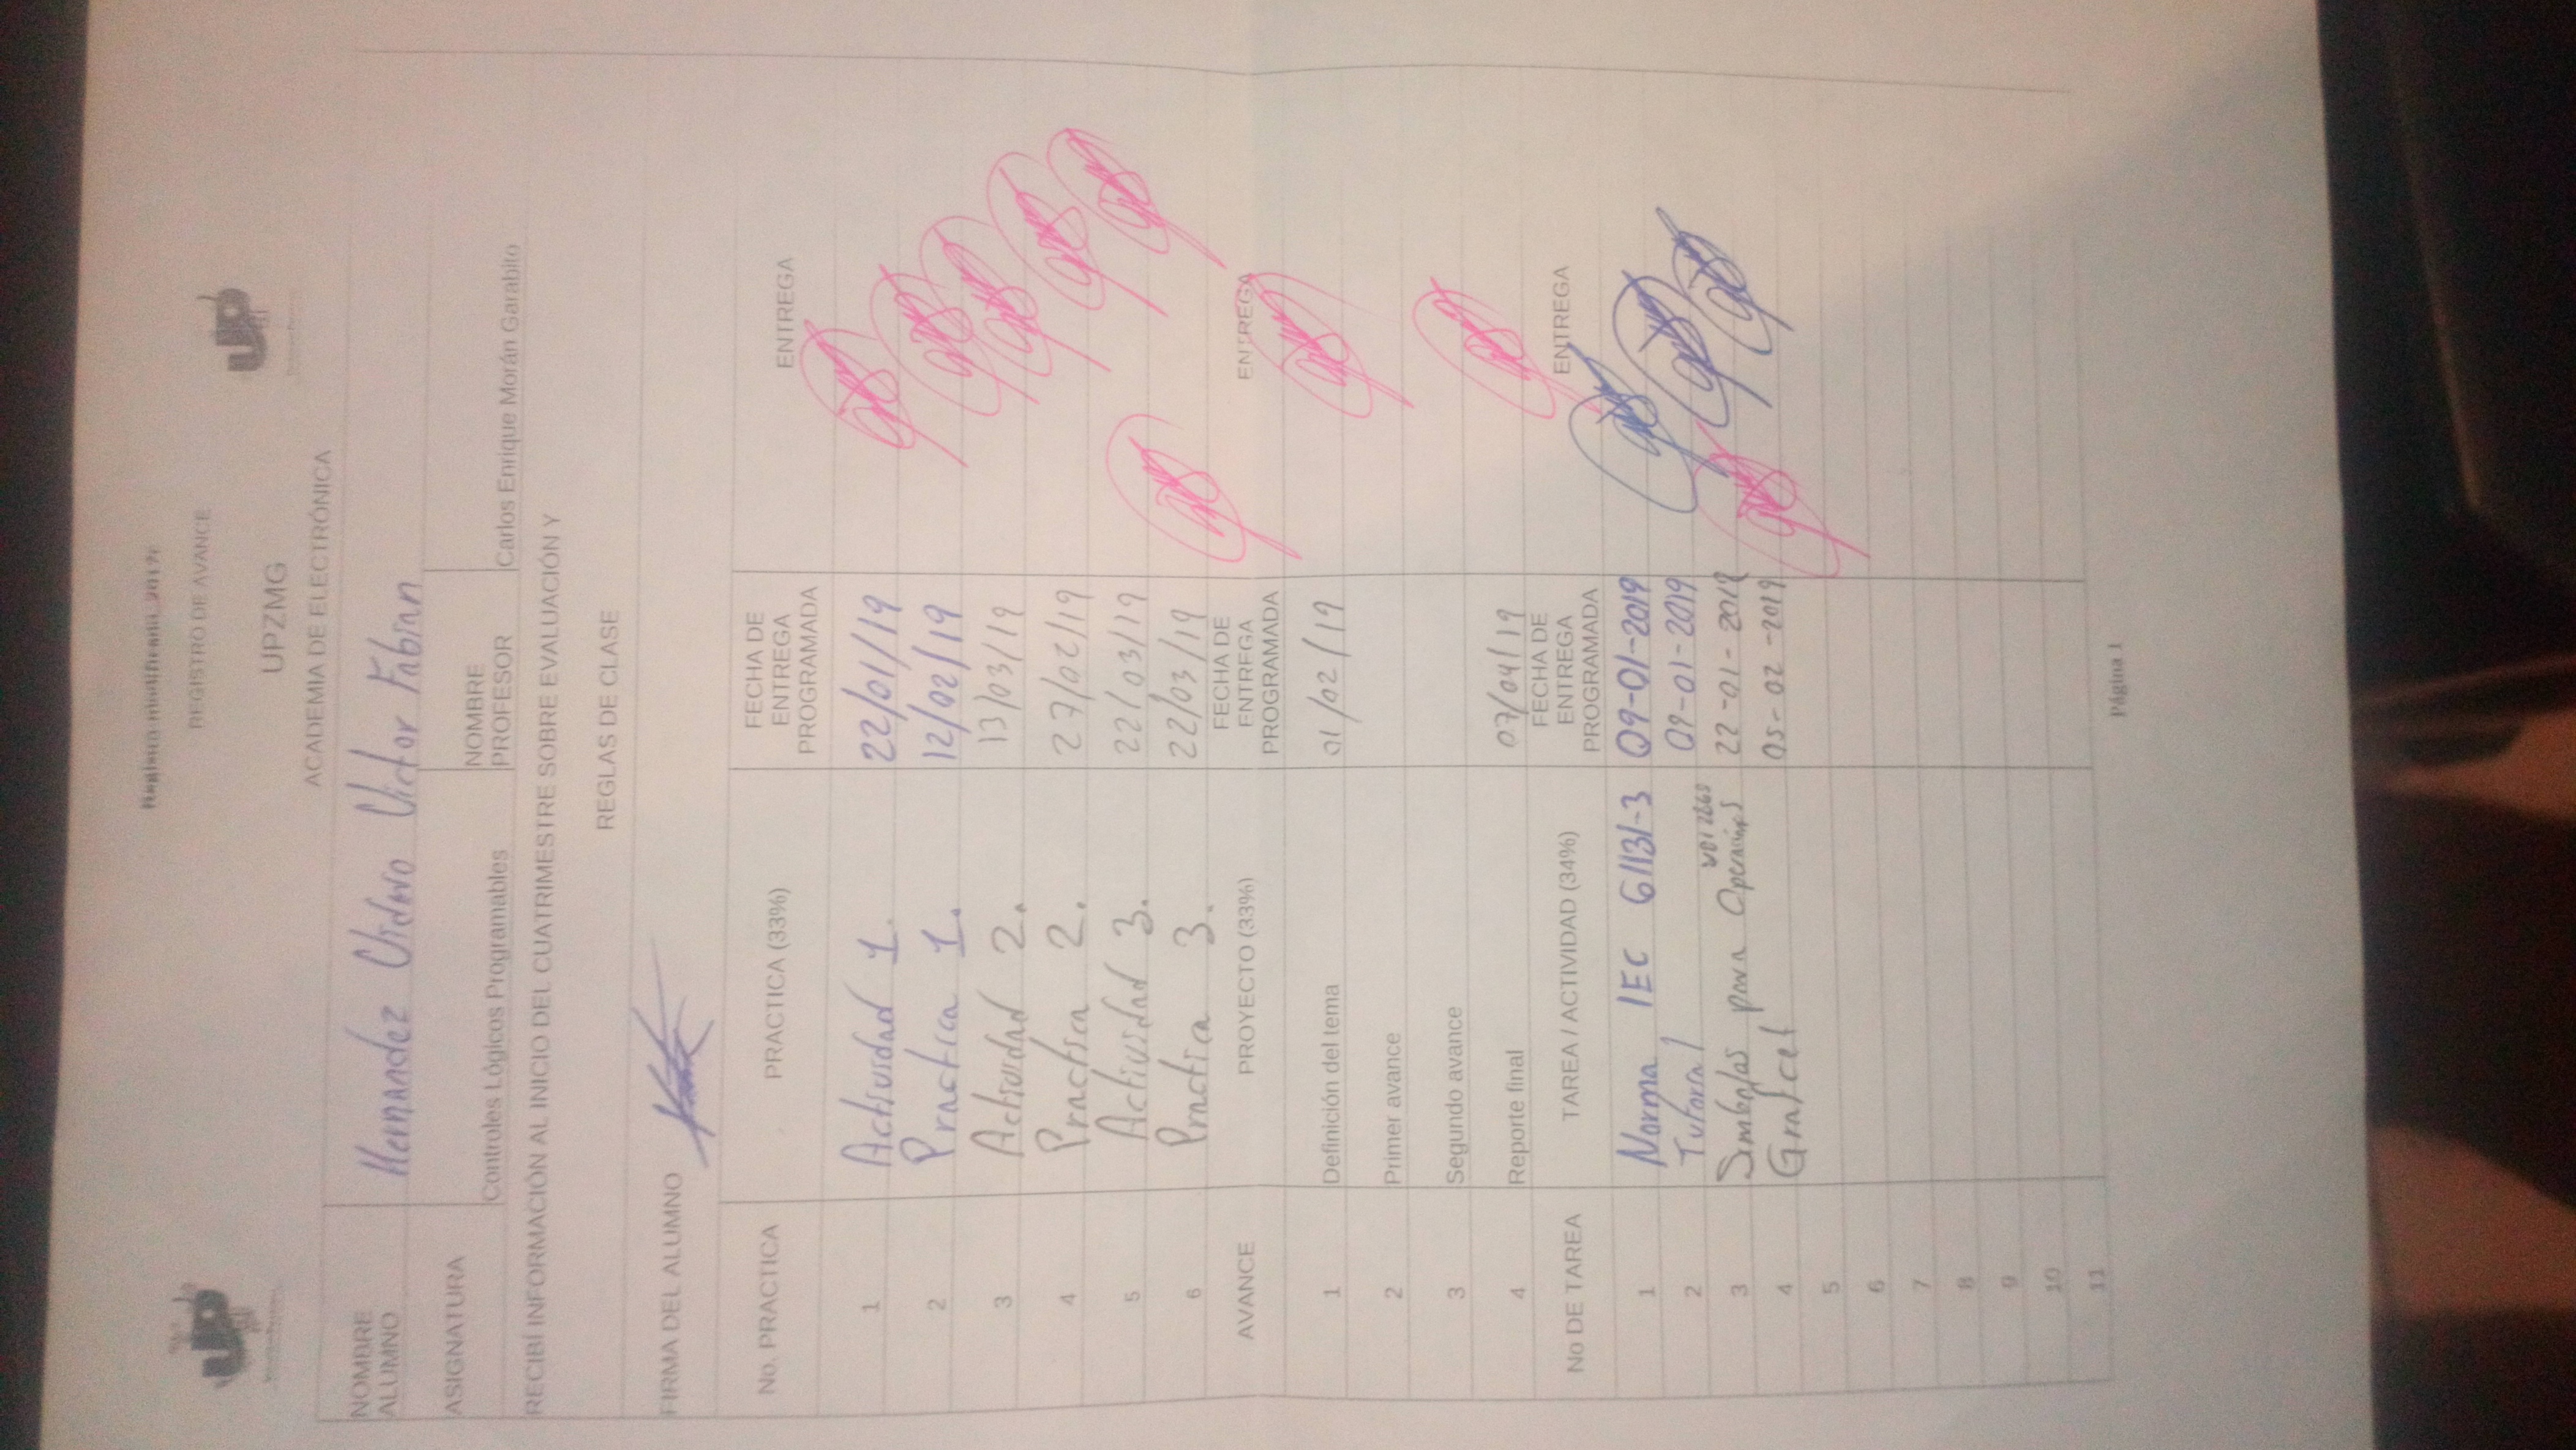 REGISTRO DE AVANCE
UPZMG
ACADEMIA DE ELECTRÓNICA
NOMBRE ALUMNO Hernandez Victor Fabian
ASIGNATURA Controles Lógicos Programables NOMBRE PROFESOR Carlos Enrique Morán Garabito
RECIBÍ INFORMACIÓN AL INICIO DEL CUATRIMESTRE SOBRE EVALUACIÓN Y
REGLAS DE CLASE
FIRMA DEL ALUMNO
No. PRACTICA PRACTICA (33%) FECHA DE ENTREGA PROGRAMADA ENTREGA
1 Actividad 1. 22/01/19
2 Practica 1. 12/02/19
3 Actividad 2. 13/03/19
4 Practica 2. 27/02/19
5 Actividad 3. 22/03/19
6 Practica 3. 22/03/19
AVANCE PROYECTO (33%) FECHA DE ENTREGA PROGRAMADA ENTREGA
1 Definición del tema 01/02/19
2 Primer avance
3 Segundo avance
4 Reporte final 07/04/19
No DE TAREA TAREA / ACTIVIDAD (34%) FECHA DE ENTREGA PROGRAMADA ENTREGA
1 Norma IEC 61131-3 09-01-2019
2 Tutorial 09-01-2019
3 Simbolos para Operaciones 22-01-2019
4 Grafcet 05-02-2019
5
6
7
8
9
10
11
Página 1